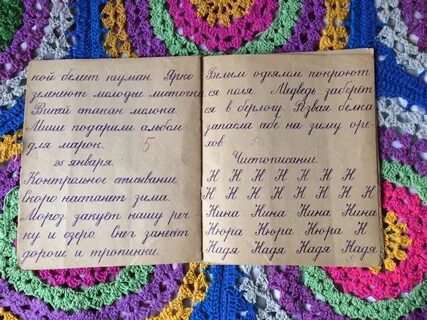 кой белит туман. Ярко
зеленеют молодые листочки
Выпей стакан молока.
Мише подарили альбом
для марок.
5
25 января.
Контрольное списывание.
Скоро настанет зима.
Мороз закует нашу реч
ку и озеро. Снег занесет
дороги и тропинки.
Белым одеялом покроют
ся поля. Медведь заберёт
ся в берлогу. Резвая белка
запасла себе на зиму оре-
хов.
5
Чистописание.
Н Н Н Н Н Н Н Н
Н Н Н Н Н Н Н Н
Нина Нина Нина Нина
Нюра Нюра Нюра Н
Надя Надя Надя Надя